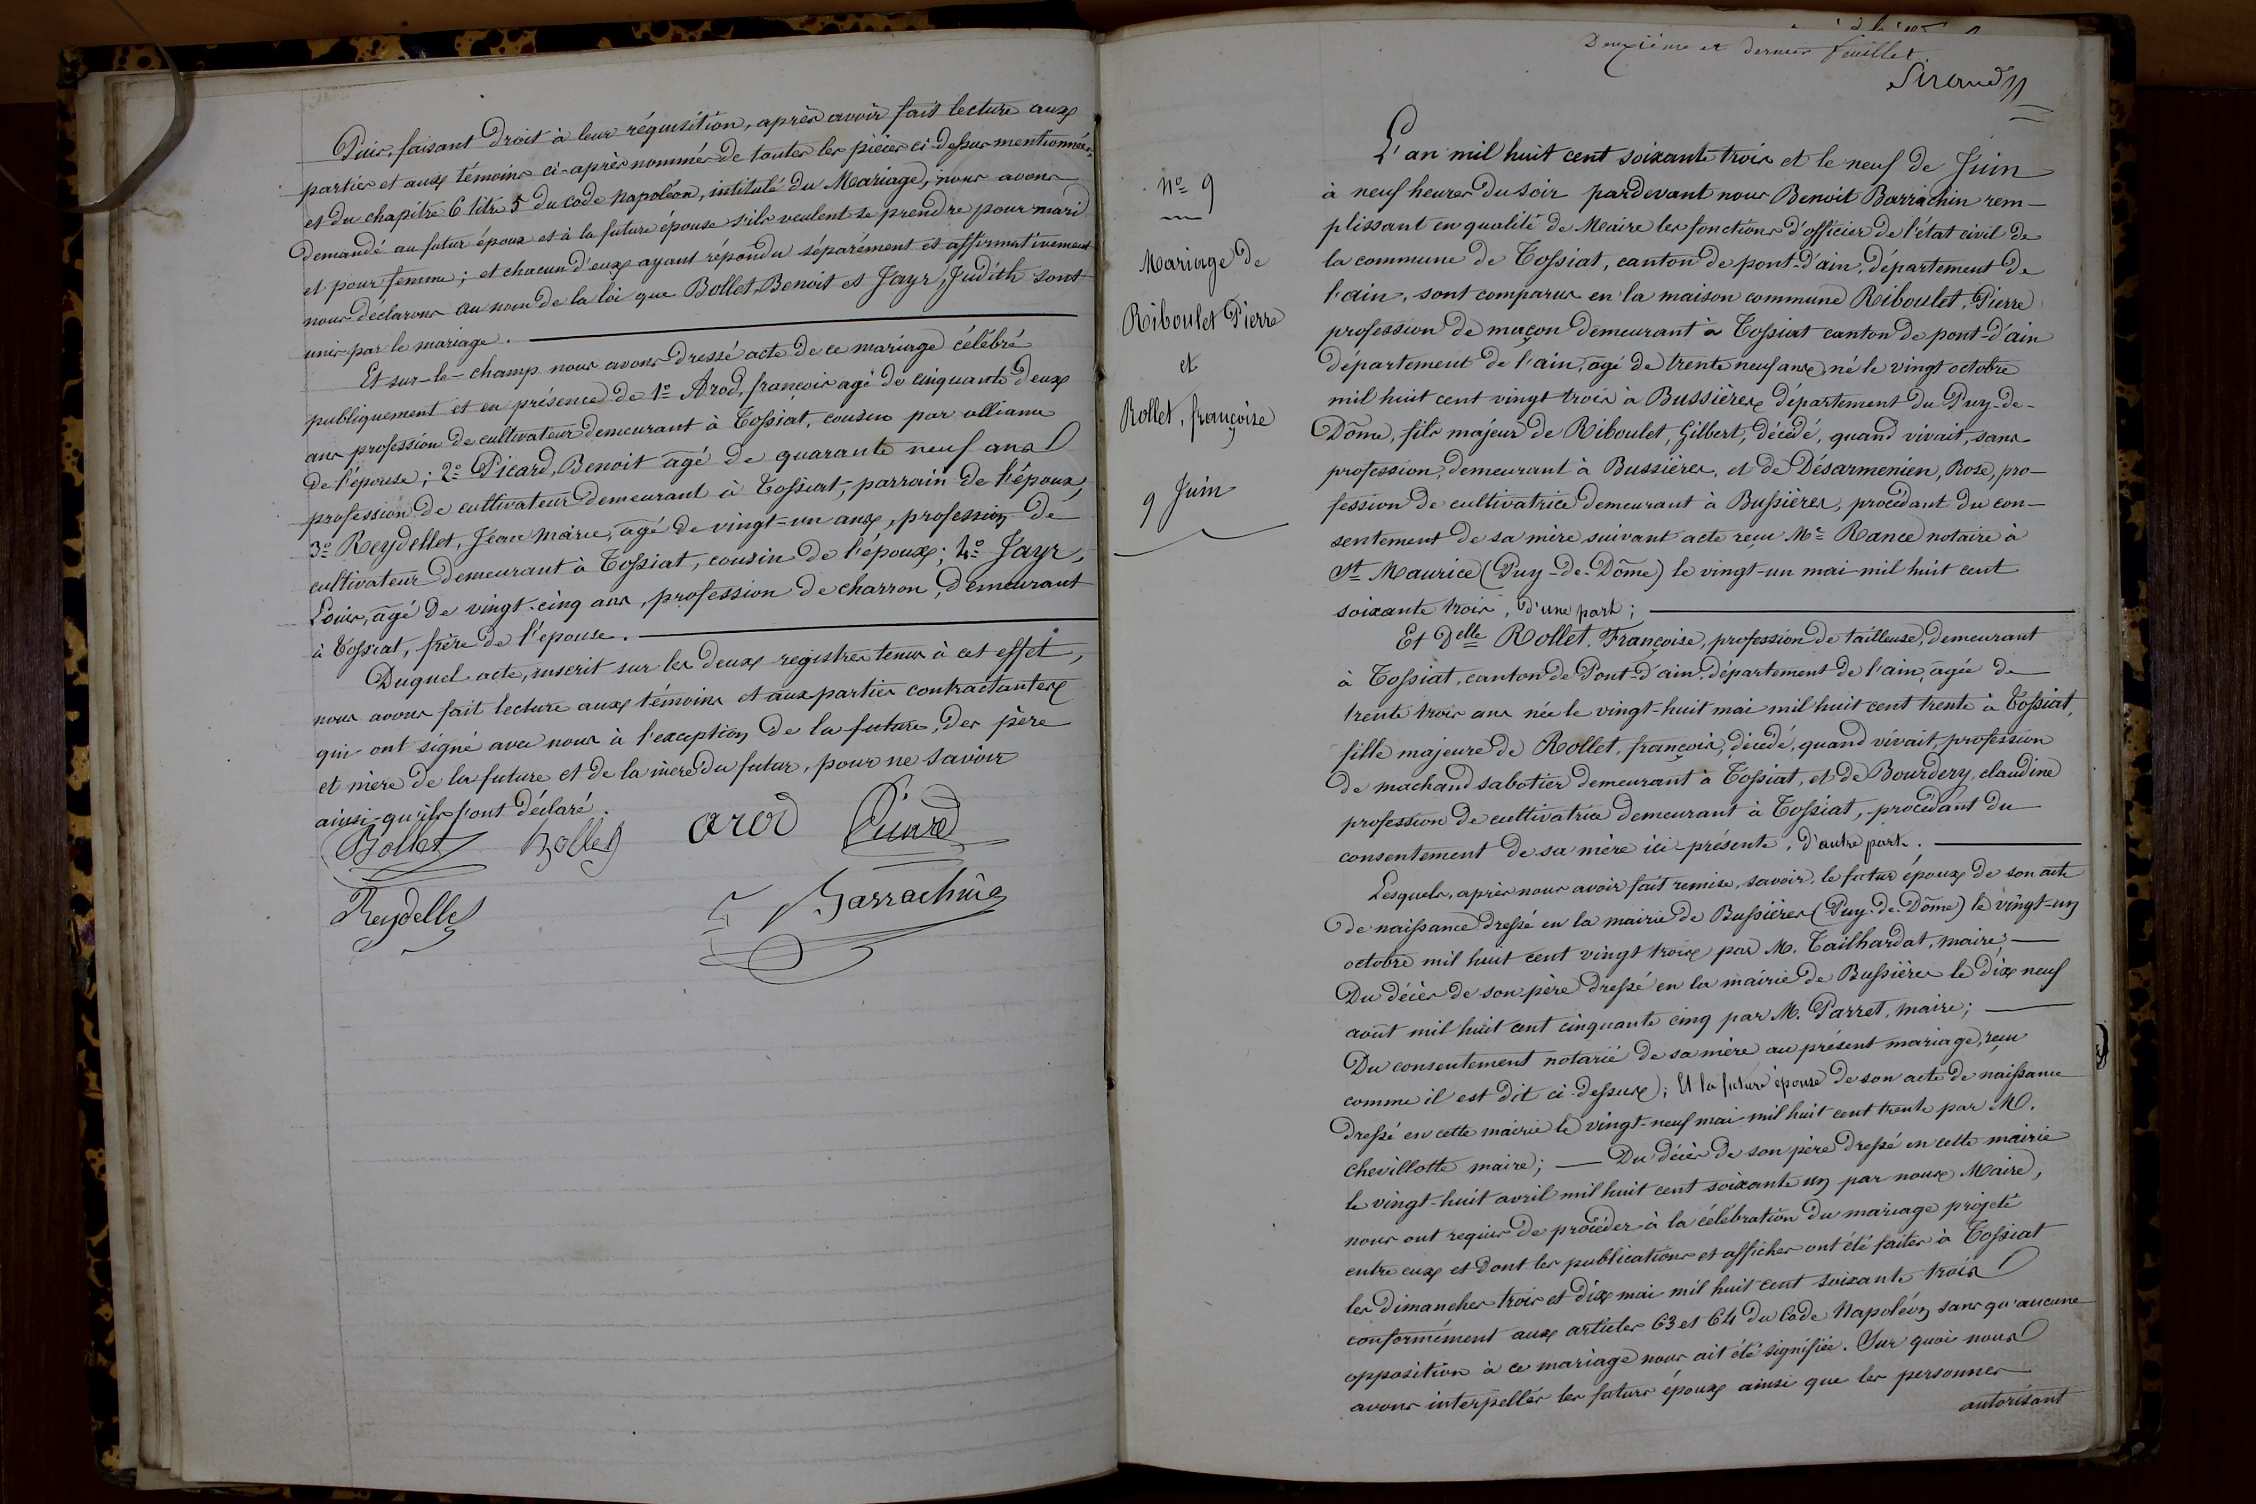 Puis, faisant droit à leur réquisition, après avoir fait lecture aux
parties et aux témoins ci-après nommés de toutes les pièces ci-dessus mentionnées,
et du chapitre 6 titre 5 du code Napoléon, intitulé du Mariage, nous avons
demandé au futur époux et à la future épouse s'ils veulent se prendre pour mari
et pour femme ; et chacun d'eux ayant répondu séparément et affirmativement
nous déclarons au nom de la loi que Bollet, Benoit et Jayr, Judith sont
unis par le mariage.
Et sur-le-champ nous avons dressé acte de ce mariage célébré
publiquement et en présence de 1º Arod, françois agé de cinquante deux
ans profession de cultivateur demeurant à Tossiat, cousin par alliance
de l'épouse ; 2º Picard, Benoit âgé de quarante neuf ans
profession de cultivateur demeurant à Tossiat, parrain de l'époux,
3º Reydellet, Jean Marie, âgé de vingt-un ans, profession de
cultivateur demeurant à Tossiat, cousin de l'époux ; 4º Jayr,
Louis, âgé de vingt-cinq ans, profession de charron, demeurant
à Tossiat, frère de l'épouse.
Duquel acte, inscrit sur les deux registres tenus à cet effet,
nous avons fait lecture aux témoins et aux parties contractantes
qui ont signé avec nous à l'exception de la future, des père
et mère de la future et de la mère du futur, pour ne savoir
ainsi qu'ils l'ont déclaré.
Bollet Bollet arod Picard
Reydellet Barrachin
Deuxième et dernier feuillet
Sirandy
Nº 9
Mariage de
Riboulet Pierre
et
Rollet, françoise
9 Juin
L'an mil huit cent soixante trois et le neuf de Juin
à neuf heures du soir pardevant nous Benoit Barrachin rem-
plissant en qualité de Maire les fonctions d'officier de l'état civil de
la commune de Tossiat, canton de pont-d'ain, département de
l'ain, sont comparus en la maison commune Riboulet, Pierre
profession de maçon demeurant à Tossiat canton de pont-d'ain
département de l'ain, âgé de trente neuf ans, né le vingt octobre
mil huit cent vingt trois à Bussières département du Puy-de-
Dôme, fils majeur de Riboulet, Gilbert, décédé, quand vivait, sans
profession, demeurant à Bussières, et de Désarmenien, Rose, pro-
fession de cultivatrice demeurant à Bussières, procédant du con-
sentement de sa mère suivant acte reçu Me Rance notaire à
St Maurice (Puy-de-Dôme) le vingt-un mai mil huit cent
soixante trois, d'une part ;
Et Delle Rollet, Françoise, profession de tailleuse, demeurant
à Tossiat, canton de Pont-d'ain, département de l'ain, âgée de
trente trois ans née le vingt-huit mai mil huit cent trente à Tossiat,
fille majeure de Rollet, françois, décédé, quand vivait, profession
de machand sabotier demeurant à Tossiat, et de Bourdery, claudine
profession de cultivatrice demeurant à Tossiat, procédant du
consentement de sa mère ici présente, d'autre part.
Lesquels, après nous avoir fait remise, savoir, le futur époux de son acte
de naissance dressé en la mairie de Bussières (Puy-de-Dôme) le vingt-un
octobre mil huit cent vingt trois par M. Tailhardat, maire ;
Du décès de son père dressé en la mairie de Bussières le dix neuf
août mil huit cent cinquante cinq par M. Parret, maire ;
Du consentement notarié de sa mère au présent mariage, reçu
comme il est dit ci-dessus ; Et la future épouse de son acte de naissance
dressé en cette mairie le vingt-neuf mai mil huit cent trente par M.
Chevillotte maire ; Du décès de son père dressé en cette mairie
le vingt-huit avril mil huit cent soixante un par nous Maire,
nous ont requis de procéder à la célébration du mariage projeté
entre eux et dont les publications et affiches ont été faites à Tossiat
les dimanches trois et dix mai mil huit cent soixante trois
conformément aux articles 63 et 64 du Code Napoléon sans qu'aucune
opposition à ce mariage nous ait été signifiée. Sur quoi nous
avons interpellés les futurs époux ainsi que les personnes
autorisant